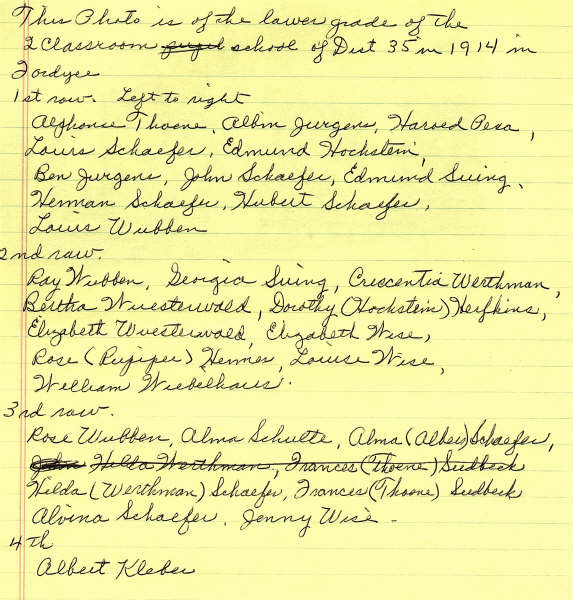 This Photo is of the lower grade of the
2 Classroom school of Dist 35 in 1914 in
Fordyce
1st row. Left to right
Alphonse Thoene, Albin Jurgens, Harold Pesa,
Louis Schaefer, Edmund Hochstein,
Ben Jurgens, John Schaefer, Edmund Suing,
Herman Schaefer, Hubert Schaefer,
Louis Wubben
2nd row.
Ray Wubben, Georgia Suing, Crescentia Werthman,
Bertha Wuesterwald, Dorothy (Hochstein) Heifkins,
Elizabeth Wuesterwald, Elizabeth Wise,
Rose (Pujiper) Hermes, Louise Wise,
William Wiebelhaus.
3rd row.
Rose Wubben, Alma Schulte, Alma (Alber) Schaefer,
John Hilda Werthman, Frances (Thoene) Sudbeck
Hilda (Werthman) Schaefer, Frances (Thoene) Sudbeck
Alvina Schaefer, Jenny Wise -
4th
Albert Kleber